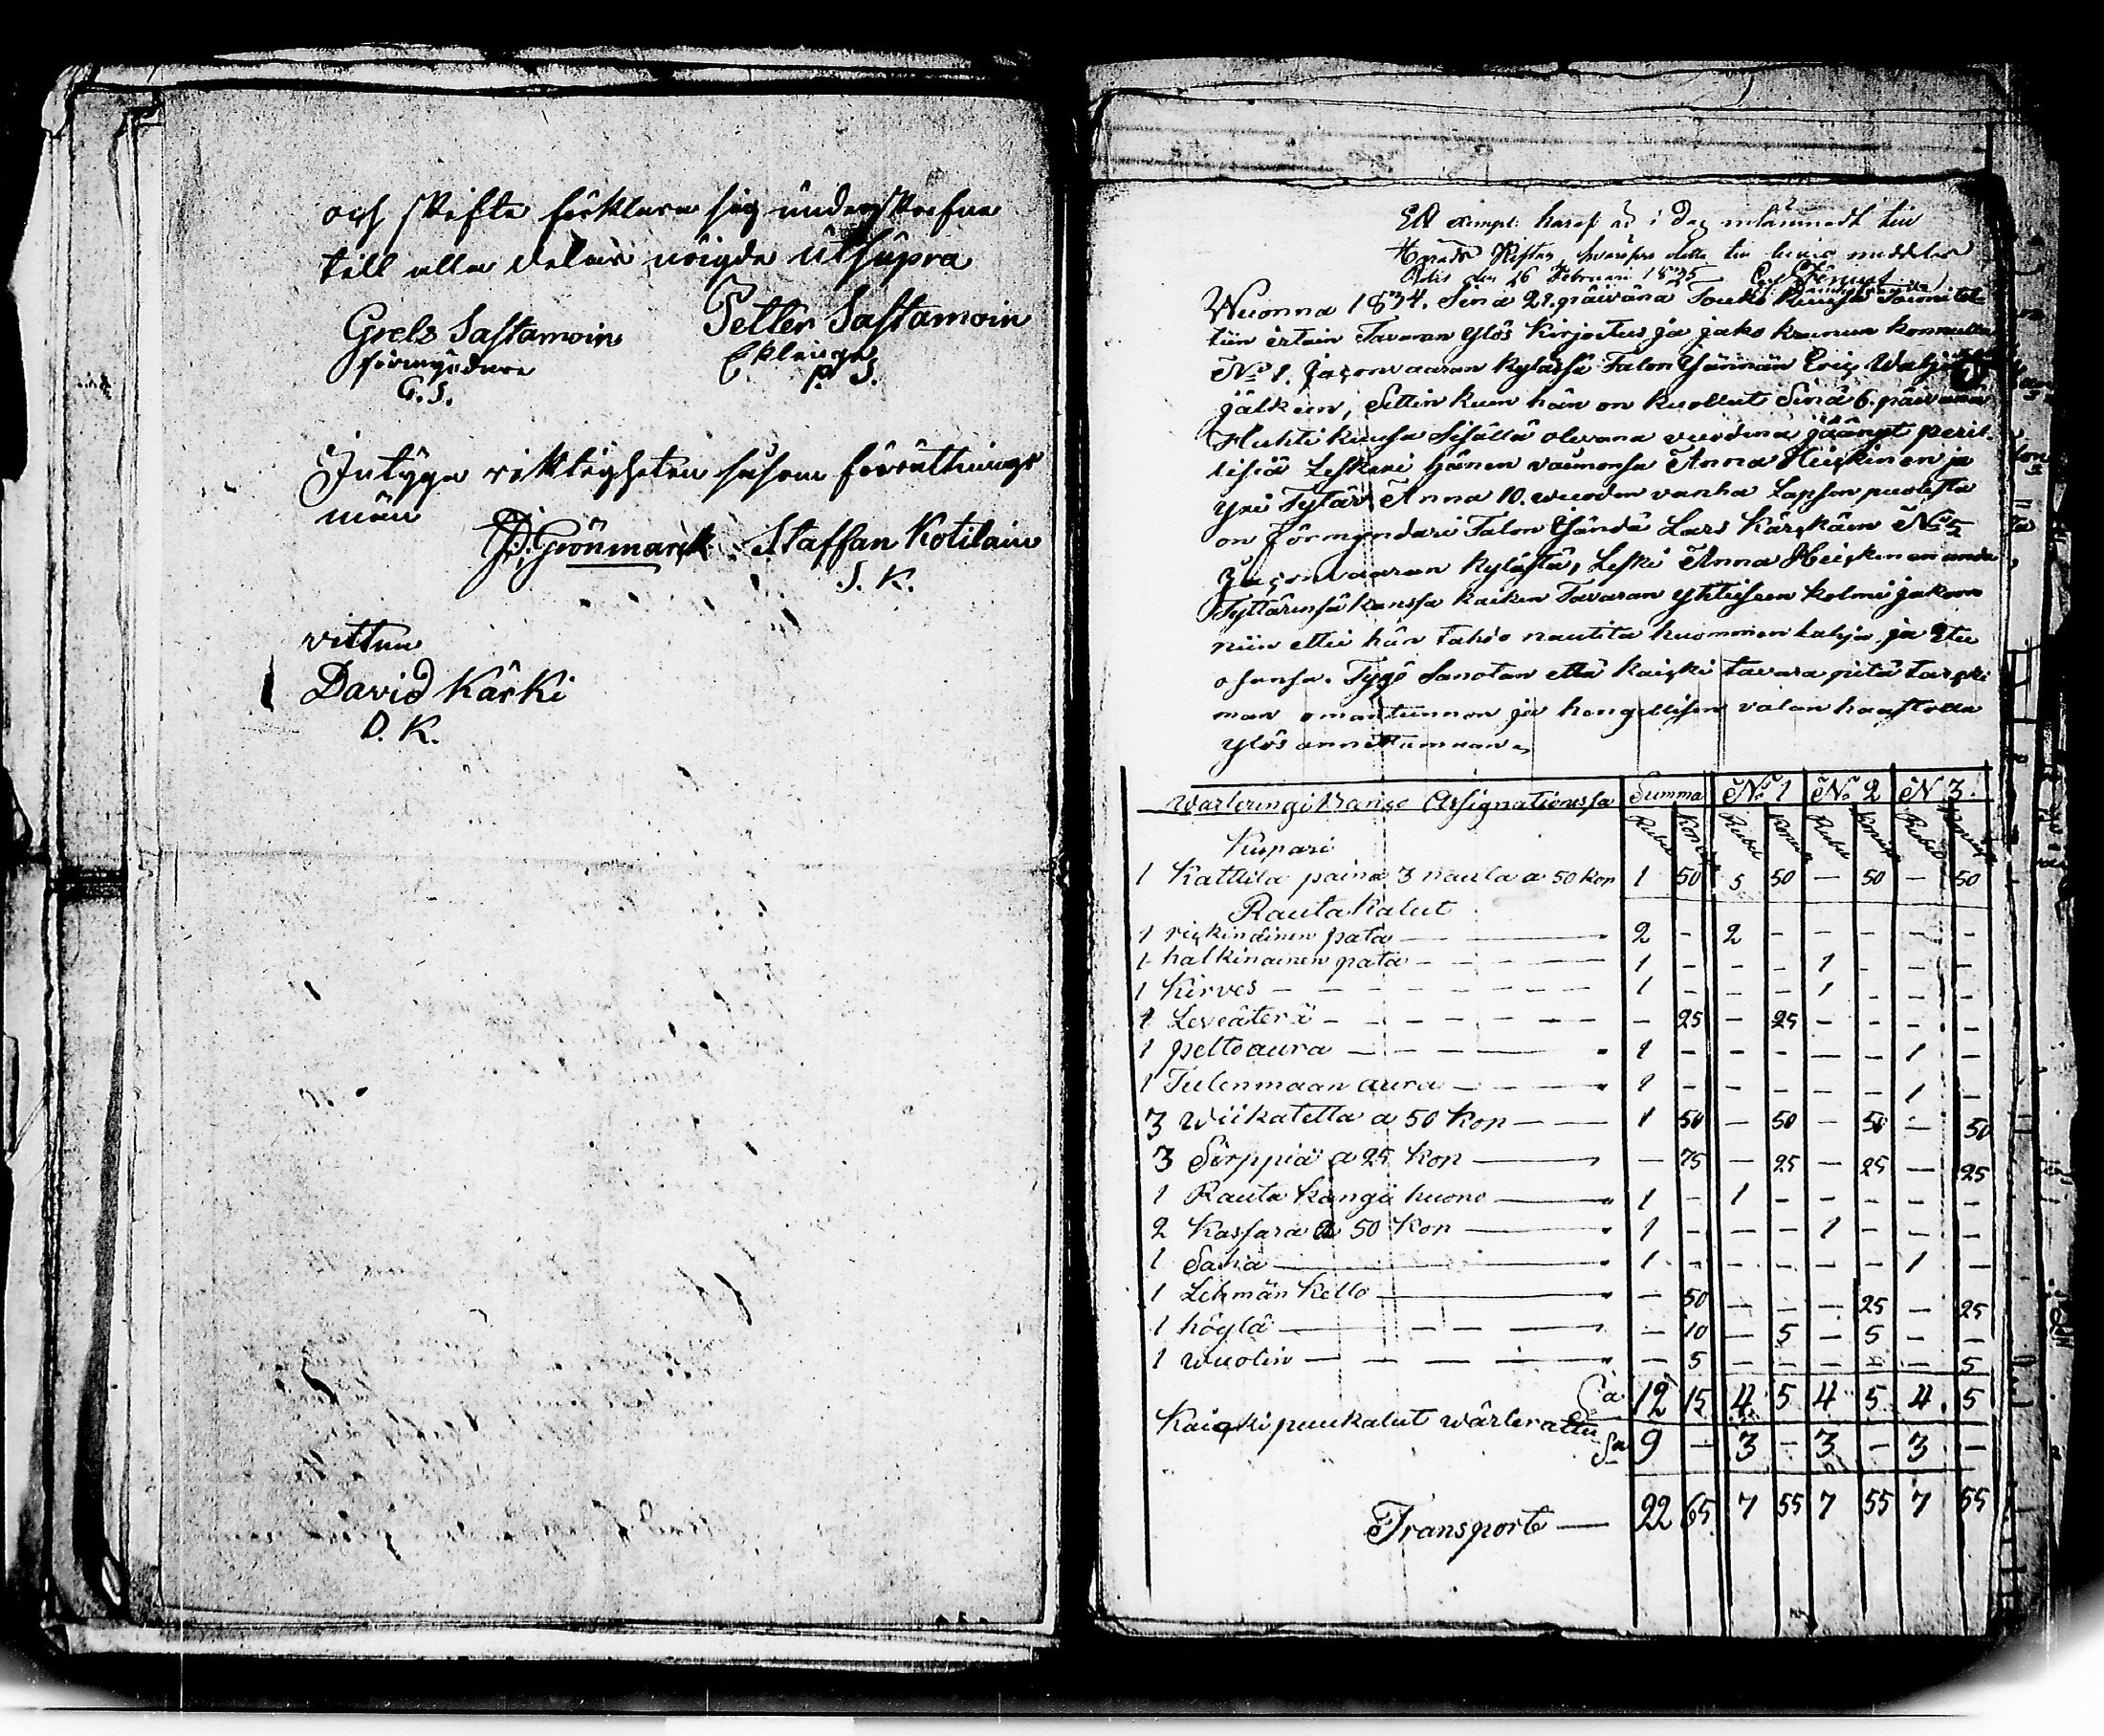 och skifte förklara sig underskrefne
till alla delar nöigda utsupra
Grels Sastamoin
förmyndare
G. S.
Petter Sastamoin
P. S.
Intyga riktigheten såsom förrättnings
män
Grönmarck Staffan Kotilain
S. K.
vittne
David Kärki
D. K.
Ett exempl: häraf är i dag inlämnadt till
Härads Rätten, hvaröfver detta till bevis meddelas
den 26 Februari 1835
Wuonna 1834. Sinä 29. päivänä Touko Kuusa Toimitet-
tiin irtain Tavaran Ylös Kirjoitus ja jako krunun konnulla
No 1. Jaconvaaran kylässä Talon Isännän Eric
jälkeen, Sittin kuin hän on kuollut Sinä 6. päivänä
Huhti kuusa sisällä olevana vuodena jäänyt peril-
lisiä Leskexi hänen vaimonsa Anna Heickinen ja
yxi Tytär Anna 10. wuoden vanha Lapsen puolesta
on förmyndäri Talon Isändä Lars Kärckäin No 5
Jaconvaaran kylästä, Leski Anna Heickinen anda
Tyttärensä kanssa kaiken Tavaran yhteiseen kolmi jakoon
niin ettei hän tahdo nautita huommen lahja ja Etu
osansa. Tygö Sanotan että kaicki tavara pitä tarcki
man omantunnon ja hengellisen valan haastolla
ylös annettaman.
Wärleringi Banco Assignationissa Summa No 1 No 2 N 3.
Rubl Kop Rubl Kop Rubl Kop Rubl Kop
Kupari
1 Kattila paina 3 naula a 50 kop 1 50 5 50 — 50 — 50
Rauta Kalut
1 reickinäinen pata — 2 - 2 - - - - -
1 halkinainen pata - 1 - - - 1 - - -
1 Kirves - 1 - - - 1 - - -
1 Leveäterä - — 25 — 25 - - - -
1 peltoaura — 1 - - - - - 1 -
1 Tulenmaan aura — 1 - - - - - 1 -
3 Wiikatetta a 50 Kop — 1 50 — 50 — 50 — 50
3 Sirppiä a 25 Kop — — 75 — 25 — 25 — 25
1 Rauta kangi huono — 1 - 1 - - - - -
2 Kassara a 50 Kop — 1 - - - 1 - - -
1 Saha — 1 - - - - - 1 -
1 Lehmän Kello — — 50 — - — 25 — 25
1 höylä — — 10 — 5 — 5 — -
1 Wuolin — — 5 - - - - — 5
Sa 12 15 4 5 4 5 4 5
Kaicki puukalut wärlerattu Sa 9 — 3 - 3 - 3 —
Transport — 22 65 7 55 7 55 7 55